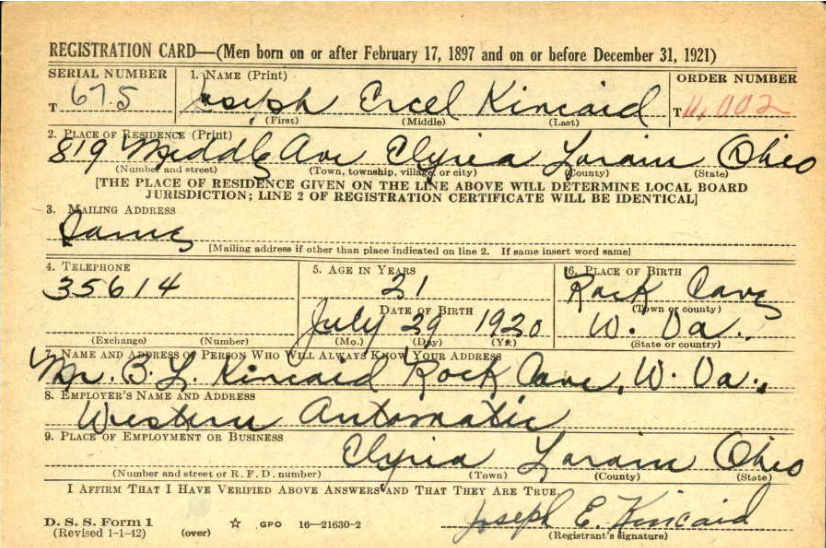 REGISTRATION CARD—(Men born on or after February 17, 1897 and on or before December 31, 1921)
SERIAL NUMBER 1. NAME (Print) ORDER NUMBER
T 675 Joseph Ercel Kincaid T 11,002
(First) (Middle) (Last)
2. PLACE OF RESIDENCE (Print)
819 Middle Ave Elyria Lorain Ohio
(Number and street) (Town, township, village, or city) (County) (State)
[THE PLACE OF RESIDENCE GIVEN ON THE LINE ABOVE WILL DETERMINE LOCAL BOARD
JURISDICTION; LINE 2 OF REGISTRATION CERTIFICATE WILL BE IDENTICAL]
3. MAILING ADDRESS
Same
[Mailing address if other than place indicated on line 2. If same insert word same]
4. TELEPHONE 5. AGE IN YEARS 6. PLACE OF BIRTH
35614 21 Rock Cave
DATE OF BIRTH (Town or county)
July 29 1920 W. Va.
(Exchange) (Number) (Mo.) (Day) (Yr.) (State or country)
7. NAME AND ADDRESS OF PERSON WHO WILL ALWAYS KNOW YOUR ADDRESS
Mr. B. L. Kincaid Rock Cave, W. Va.
8. EMPLOYER'S NAME AND ADDRESS
Western Automatic
9. PLACE OF EMPLOYMENT OR BUSINESS
Elyria Lorain Ohio
(Number and street or R. F. D. number) (Town) (County) (State)
I AFFIRM THAT I HAVE VERIFIED ABOVE ANSWERS AND THAT THEY ARE TRUE.
D. S. S. Form 1 Joseph E. Kincaid
(Revised 1-1-42) (over) ☆ GPO 16—21630-2 (Registrant's signature)